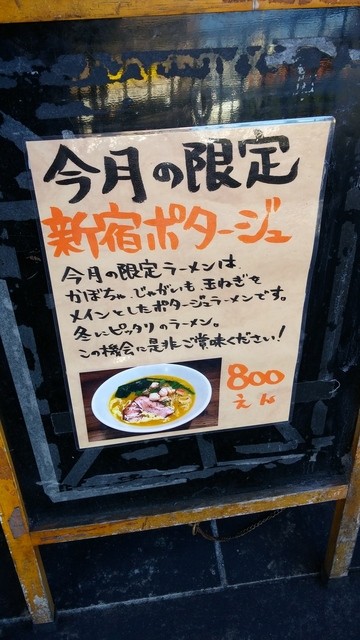 今月の限定
新宿ポタージュ
今月の限定ラーメンは、
かぼちゃ、じゃがいも、玉ねぎを
メインとしたポタージュラーメンです。
冬にピッタリのラーメン。
この機会に是非ご賞味ください!
800
えん